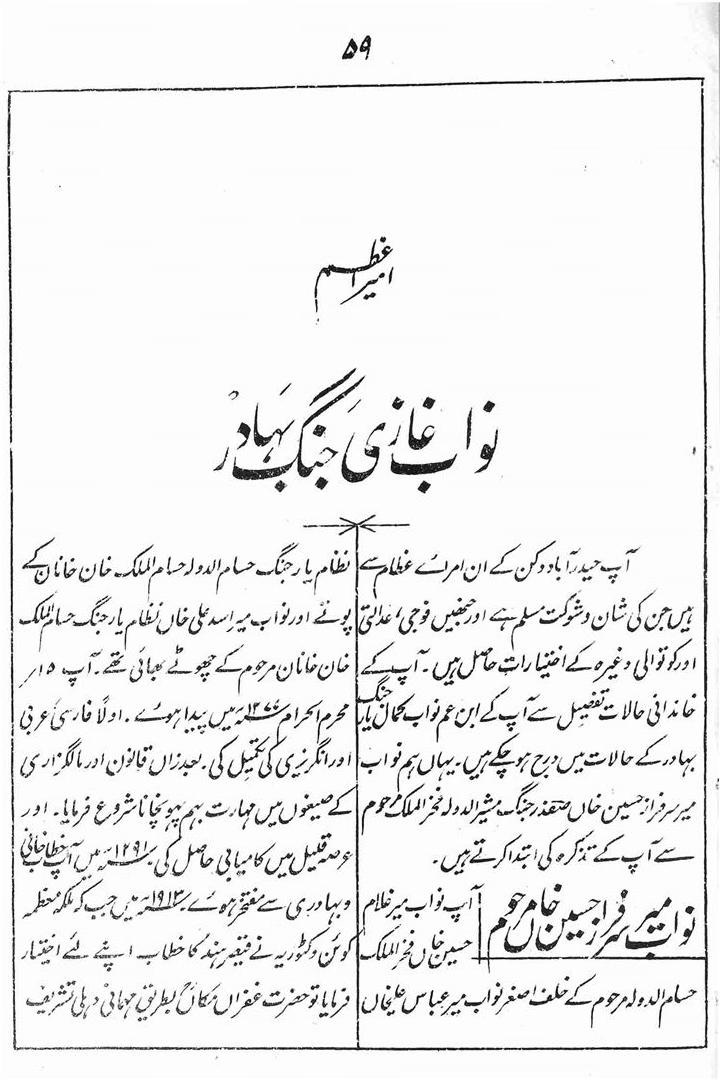 ۵۹
امیر اعظم
نواب غازی جنگ بہادر
آپ حیدرآباد دکن کے ان امرائے عظام سے
ہیں جن کی شان و شوکت مسلم ہے اور جنھیں فوجی، عدالتی
اور کوتوالی وغیرہ کے اختیارات حاصل ہیں۔ آپ کے
خاندانی حالات تفصیل سے آپ کے ابن عم نواب کمال یار جنگ
بہادر کے حالات میں درج ہو چکے ہیں۔ یہاں ہم نواب
میر سرفراز حسین خاں صفدر جنگ مشیر الدولہ فخر الملک مرحوم
سے آپ کے تذکرہ کی ابتدا کرتے ہیں۔
نواب میر سرفراز حسین خاں مرحوم
آپ نواب میر غلام
حسین خاں فخر الملک
حسام الدولہ مرحوم کے خلف اصغر نواب میر عباس علیخاں
نظام یار جنگ حسام الدولہ حسام الملک خان خاناں کے
پوتے اور نواب میر اسد علی خاں نظام یار جنگ حسام الملک
خان خاناں مرحوم کے چھوٹے بھائی تھے۔ آپ ۱۵ر
محرم الحرام ۱۲۷۴ھ میں پیدا ہوے۔ اولاً فارسی عربی
اور انگریزی کی تکمیل کی۔ بعد زاں قانون اور مالگزاری
کے صیغوں میں مہارت بہم پہونچانا شروع فرمایا۔ اور
عرصہ قلیل میں کامیابی حاصل کی ۱۲۹۱ھ میں آپ خطاب خانی
و بہادری سے مفتخر ہوے۔ میں جب کہ ملکہ معظمہ
کوئن وکٹوریہ نے قیصر ہند کا خطاب اپنے لئے اختیار
فرمایا تو حضرت غفراں مکانؒ بطریق مہمانی دہلی تشریف